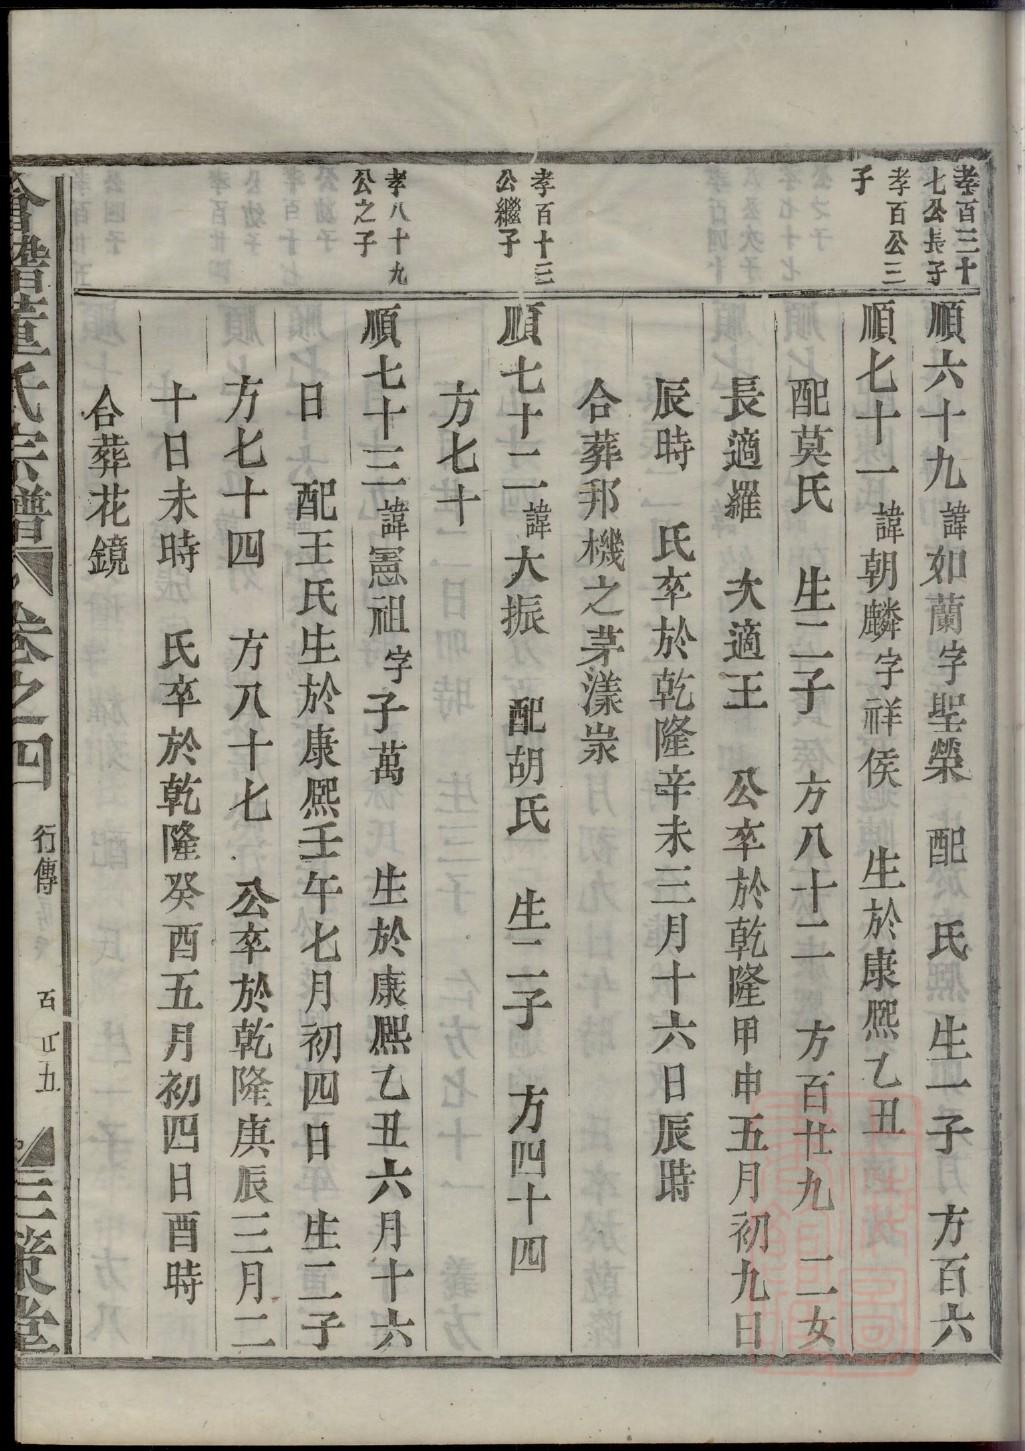 孝百三十
七公長子
順六十九諱如蘭字聖榮 配 氏 生一子 方百六
孝百公三
子
順七十一諱朝麟字祥侯 生於康熙乙丑
配莫氏 生二子 方八十二 方百廿九 二女
長適羅 次適王 公卒於乾隆甲申五月初九日
辰時 氏卒於乾隆辛未三月十六日辰時
合葬邦機之茅漾泶
孝百十三
公繼子
順七十二諱大振 配胡氏 生二子 方四十四
方七十
孝八十九
公之子
順七十三諱憲祖字子萬 生於康熙乙丑六月十六
日 配王氏生於康熙壬午七月初四日 生二子
方七十四 方八十七 公卒於乾隆庚辰三月二
十日未時 氏卒於乾隆癸酉五月初四日酉時
合葬花鏡
會稽董氏宗譜 卷之四 行傳 三策堂